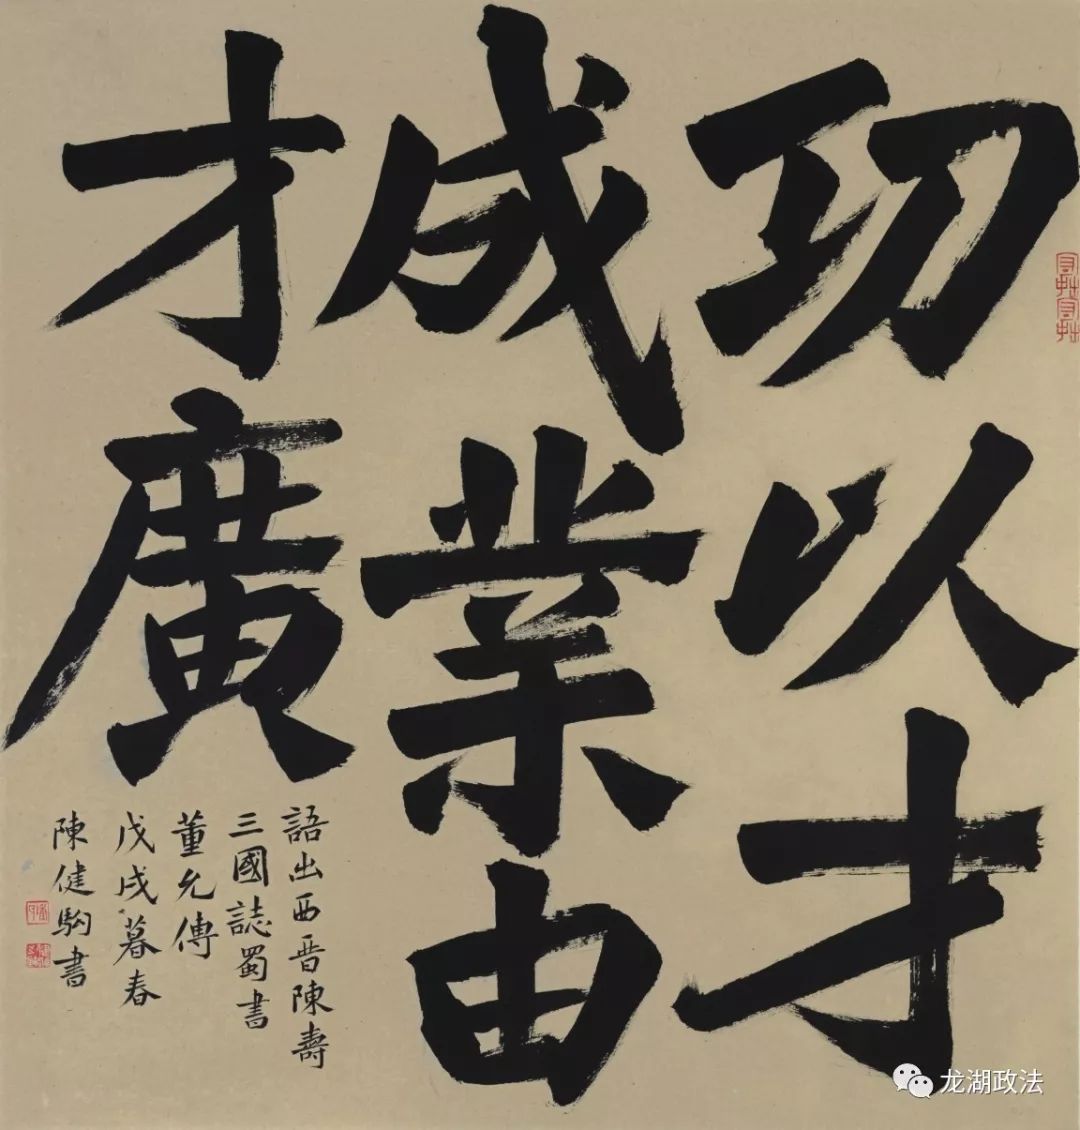 功以才
成業由
才廣
語出西晋陳壽
三國誌蜀書
董允傳
戊戌暮春
陳健駒書
龙湖政法